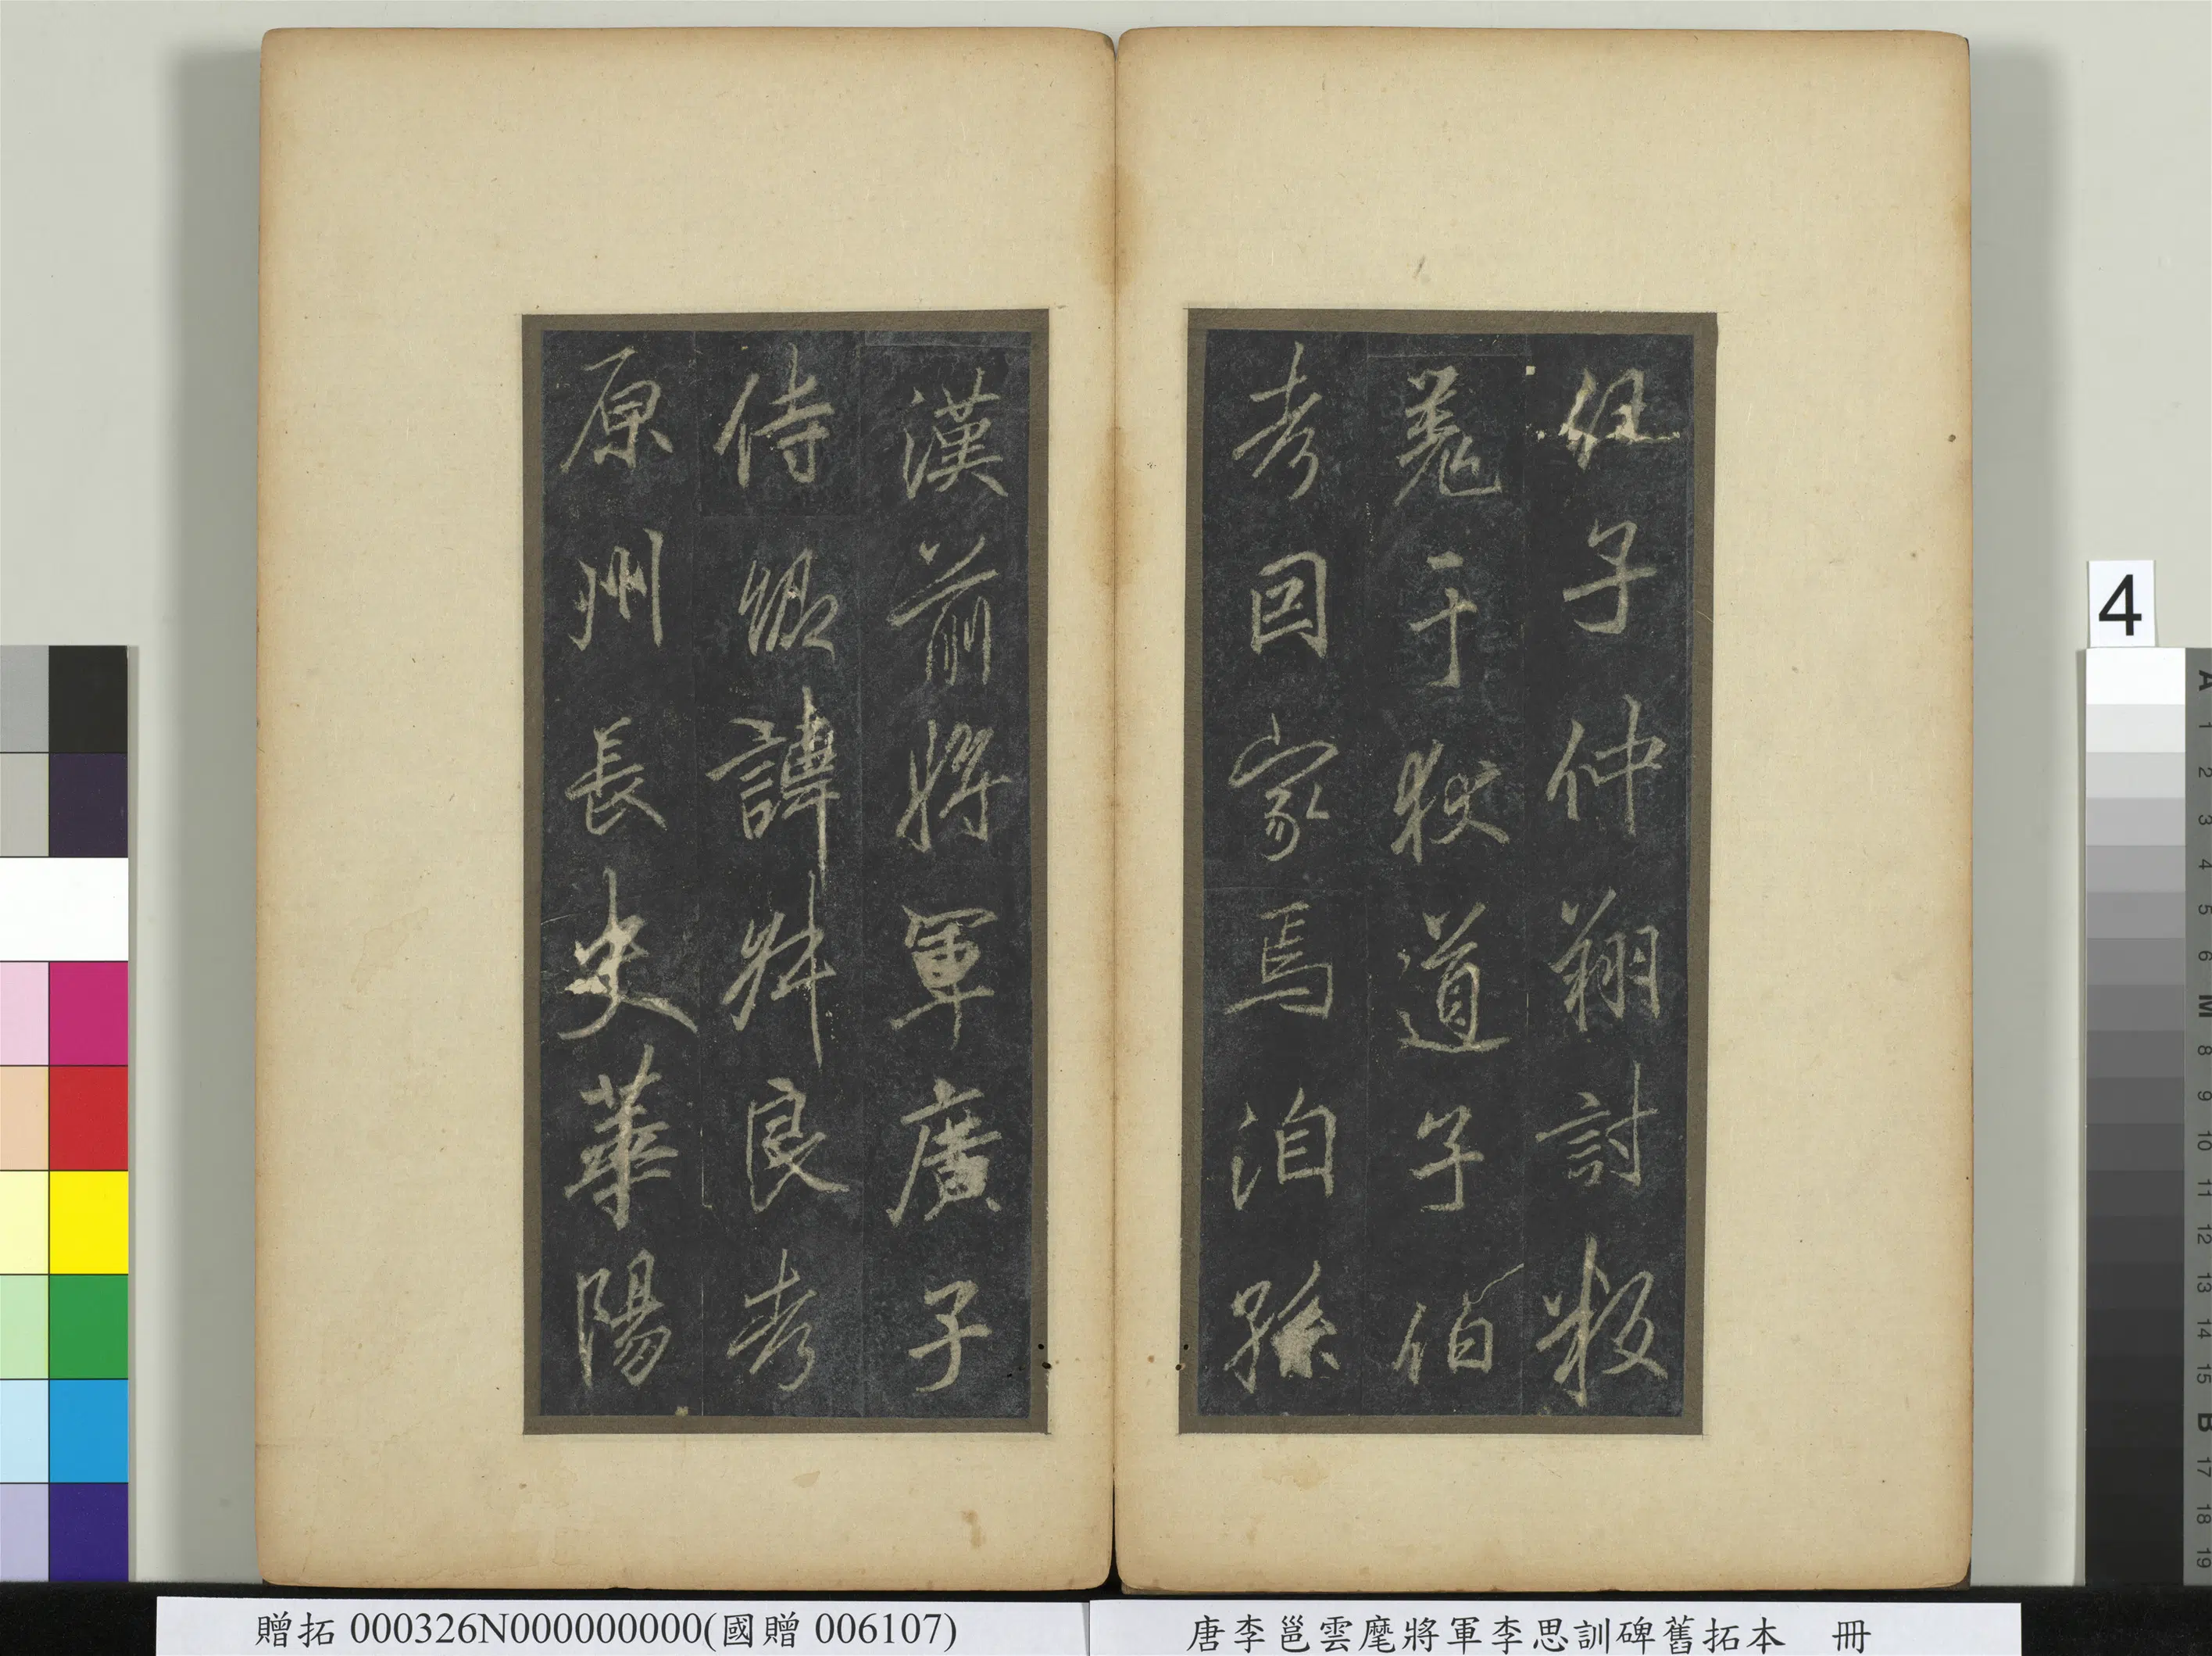 子仲翔討叛
羌于狄道子伯
考因家焉洎孫
漢前將軍廣子
侍卿諱叔良考
原州長史華陽
4
贈拓 000326N000000000(國贈 006107)
唐李邕雲麾將軍李思訓碑舊拓本 冊
A 1 2 3 4 5 6 M 8 9 10 11 12 13 14 15 B 17 18 19